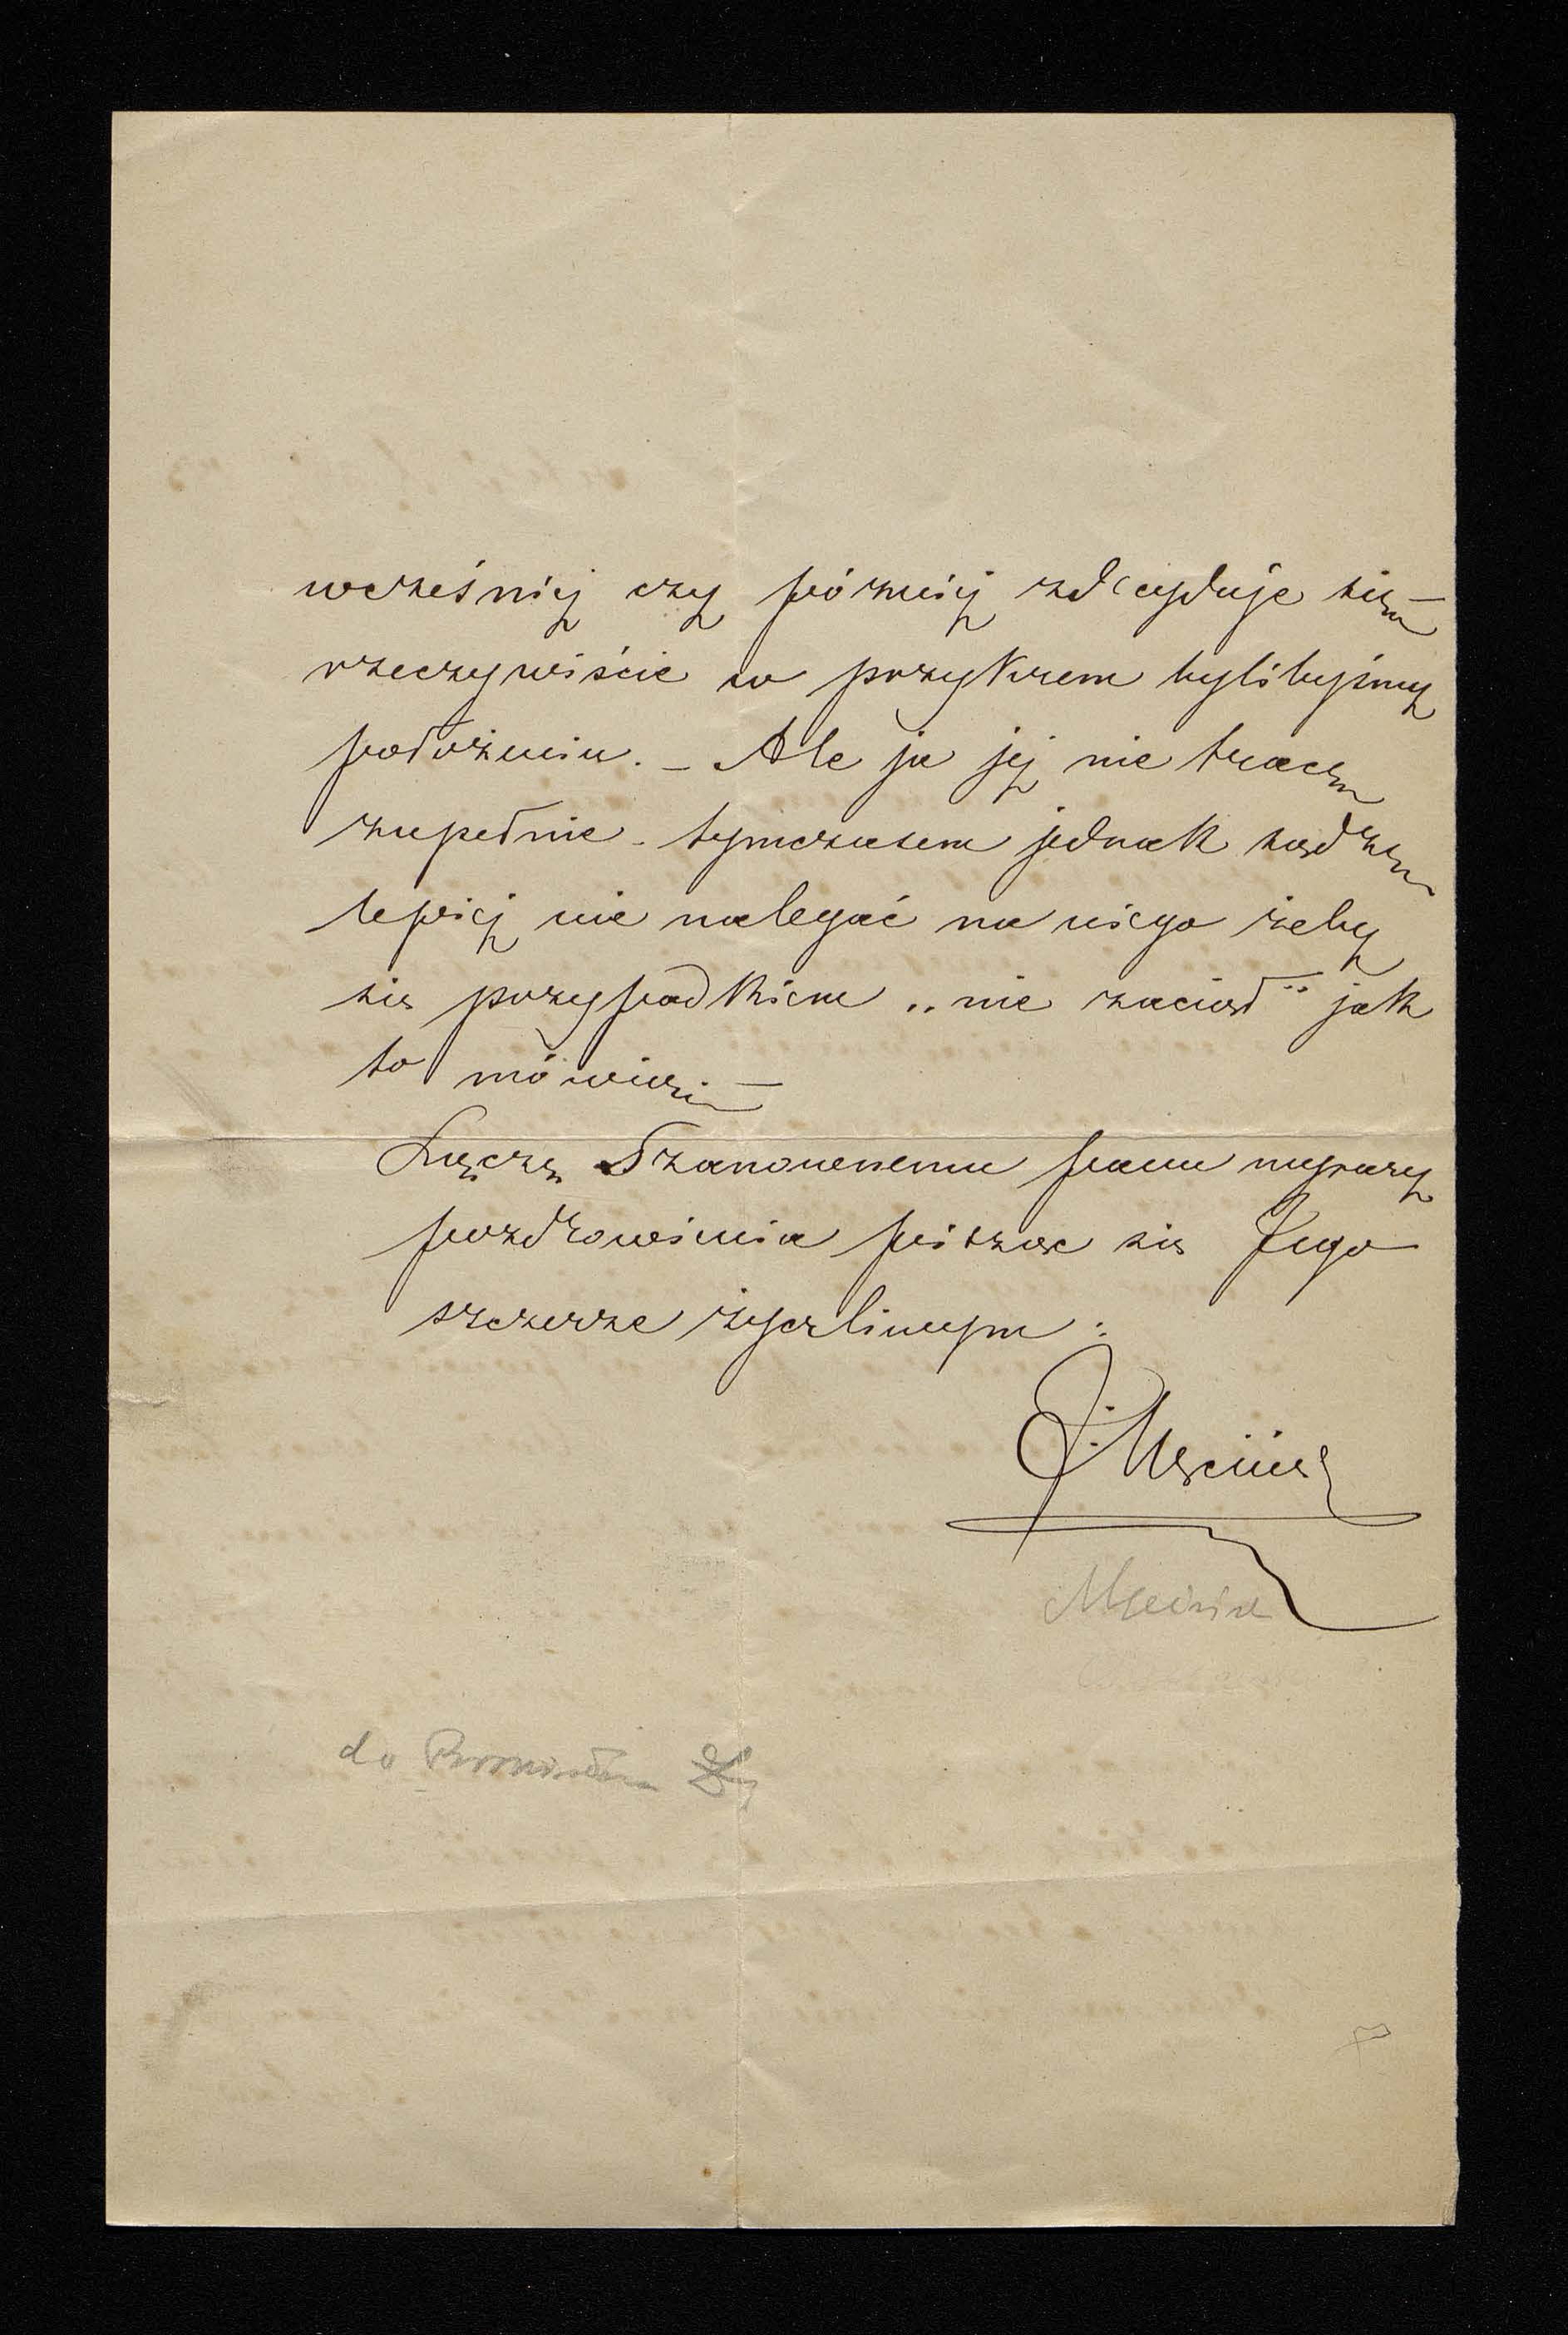 wcześniej czy później zdecyduje się —
rzeczywiście w przykrem bylibyśmy
położeniu. — Ale ja jej nie tracę
zupełnie - tymczasem jednak sądzę
lepiej nie nalegać na niego żeby
się przypadkiem „nie zaciął” jak
to mówią —
Łączę Szanownemu panu wyrazy
pozdrowienia pisząc się Jego
szczerze życzliwym:
J. Męcina
Męcina
do Bronisława